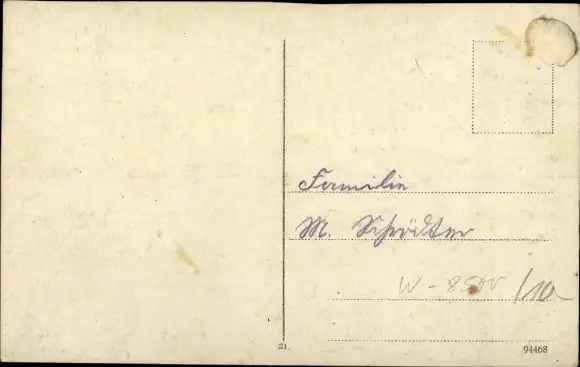 Familie
M. Schrödter
W-8500
21.
94468